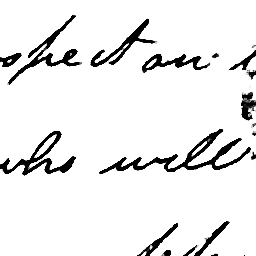 ospect on
who will